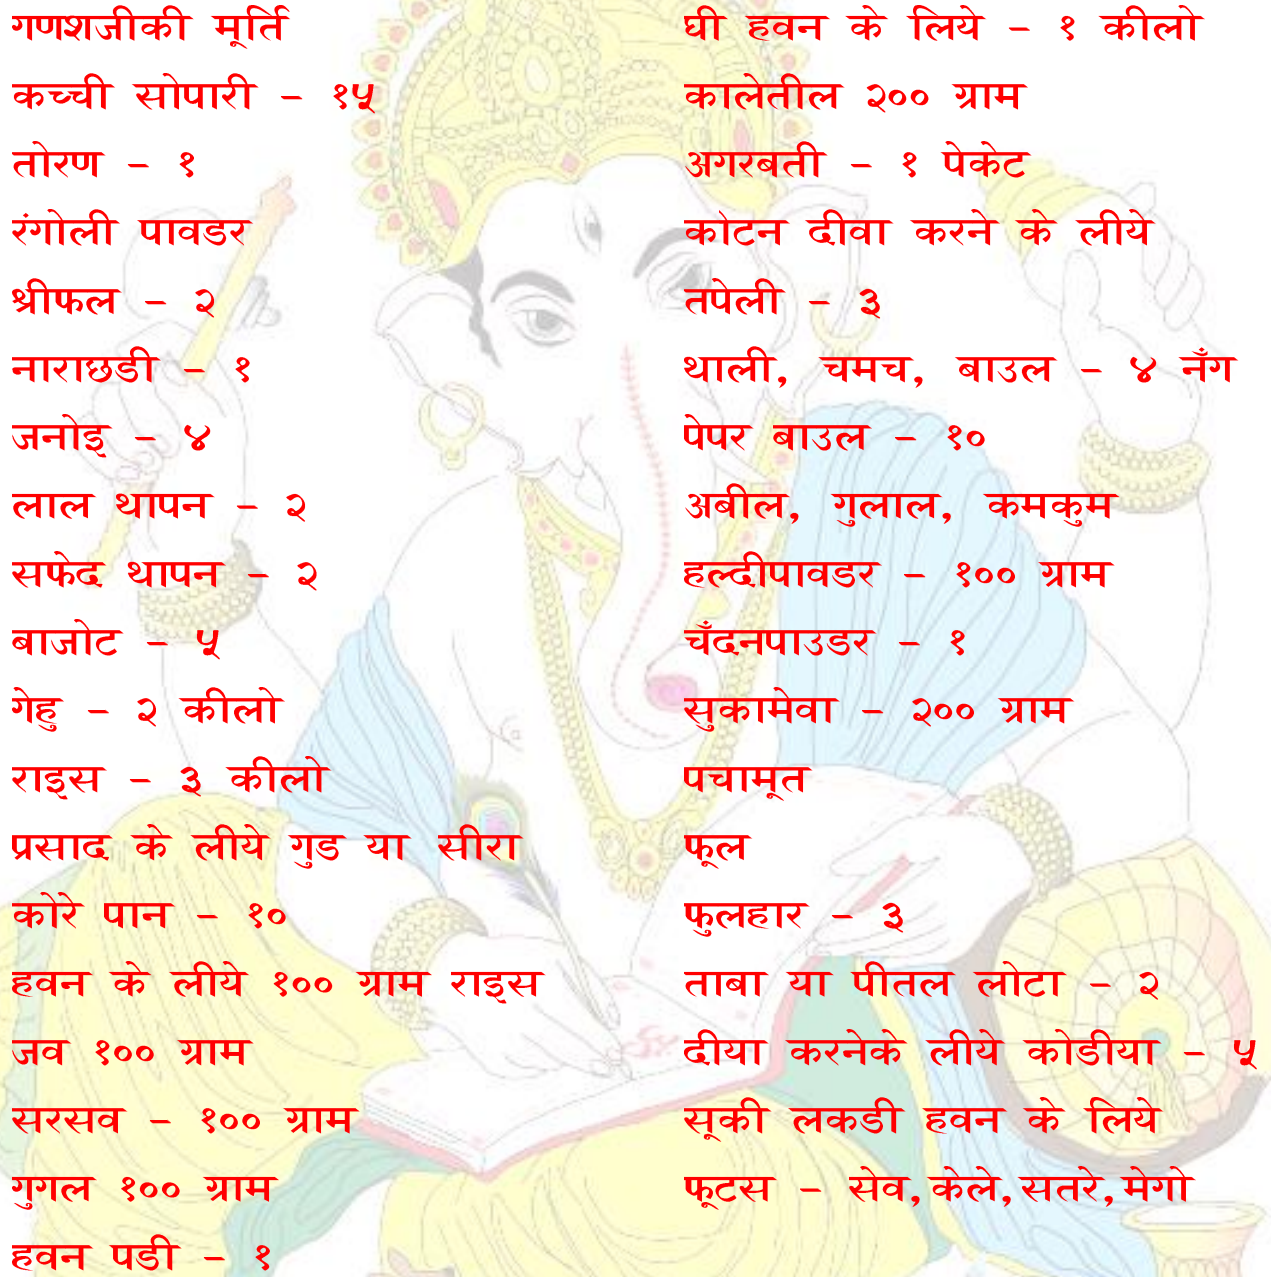 गणशजीकी मूर्ति
कच्ची सोपारी – १५
तोरण – १
रंगोली पावडर
श्रीफल – २
नाराछडी – १
जनोइ – ४
लाल थापन – २
सफेद थापन – २
बाजोट – ५
गेहु – २ कीलो
राइस – ३ कीलो
प्रसाद के लीये गुड या सीरा
कोरे पान – १०
हवन के लीये १०० ग्राम राइस
जव १०० ग्राम
सरसव – १०० ग्राम
गुगल १०० ग्राम
हवन पडी – १
घी हवन के लिये – १ कीलो
कालेतील २०० ग्राम
अगरबती – १ पेकेट
कोटन दीवा करने के लीये
तपेली – ३
थाली, चमच, बाउल – ४ नँग
पेपर बाउल – १०
अबील, गुलाल, कमकुम
हल्दीपावडर – १०० ग्राम
चँदनपाउडर – १
सुकामेवा – २०० ग्राम
पचामूत
फूल
फुलहार – ३
ताबा या पीतल लोटा – २
दीया करनेके लीये कोडीया – ५
सूकी लकडी हवन के लिये
फूटस – सेव,केले,सतरे,मेगो